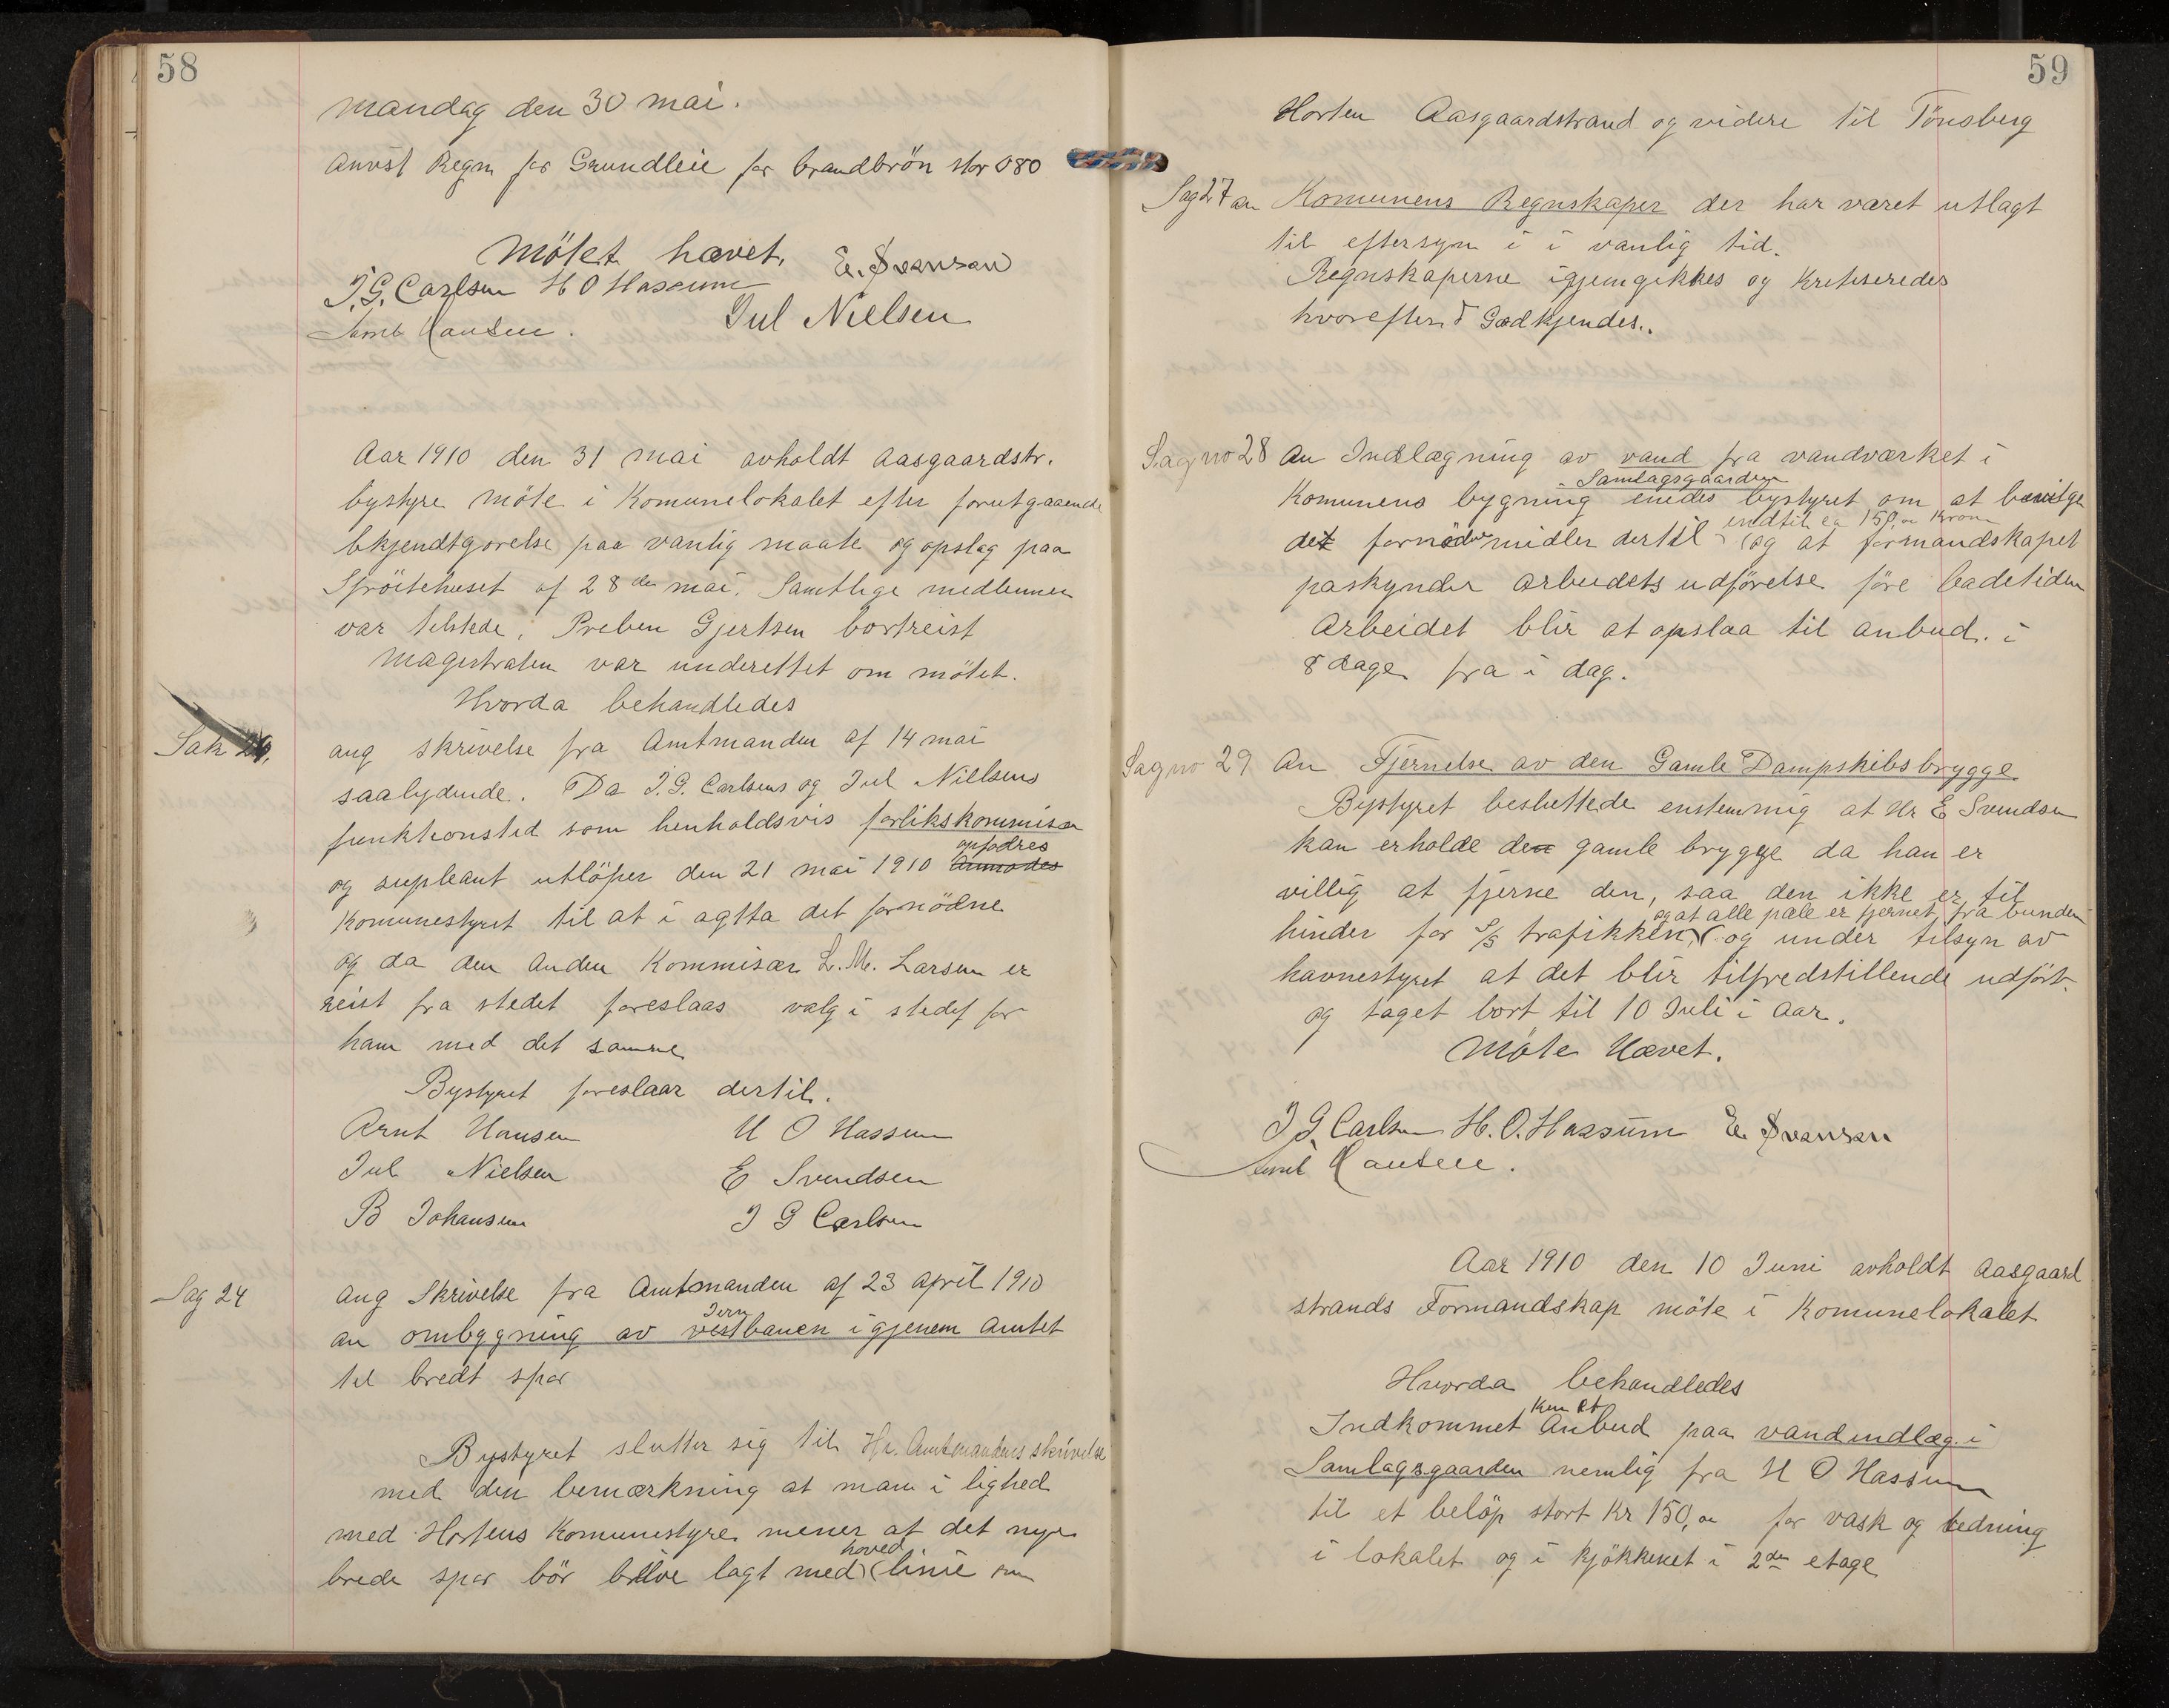 58
mandag den 30 mai.
Anvist Regn for Grundleie for brandbrön stor 080
Mötet hævet.
E. Svensen
J. G. Carlsen H O Hassum
Jul Nielsen
Arnt Hansen.
Aar 1910 den 31 mai avholdt Aasgaardstr.
bystyre möte i Komunelokalet efter forutgaaende
bkjendtgorelse paa vanlig maate og opslag paa
Spröitehuset af 28de mai. Samtlige medlemmer
var tilstede. Preben Gjertsen bortreist
Magistraten var underettet om mötet.
Hvorda behandledes
Sak
ang skrivelse fra Amtmanden af 14 mai
saalydende. Da J. G. Carlsens og Jul Nielsens
funktionstid som henholdsvis forlikskommisær
opfodres
og supleant utlöper den 21 mai 1910 Anmodes
Komunestyret til at i agtta det fornödne
og da den anden Kommisær L. M. Larsen er
reist fra stedet foreslaas valg i stedet for
ham med det samme
Bystyret foreslaar dertil.
Arnt Hansen H O Hassum
Jul Nielsen E Svendsen
B Johansen J G Carlsen
Sag 24
ang Skrivelse fra Amtmanden af 23 April 1910
Jern
an ombygning av vestbanen igjenem Amtet
til bredt spor
Bystyret slutter sig til Hr. Amtmandens skrivelse
med den bemærkning at man i lighed
med Hortens Komunestyre mener at det nye
hoved
brede spor bör blive lagt med linie om
59
Horten Aasgaardstrand og videre til Tönsberg
Sag 27 an Komunens Regnskaper der har været utlagt
til eftersyn i i vanlig tid.
Regnskaperne igjemgikkes og Kretiseredes
hvorefter d Godkjendes..
Sag no 28 An Indlægning av vand fra vandværket i
Samlagsgaarden
Komunens bygning enedes bystyret om at bevilge
indtil ca 150,00 Kroner
det fornödne midler dertil og at formandskapet
paskynder arbeidets udförelse före badetiden
Arbeidet blir at opslaa til anbud. i
8 dage fra i dag.
Sag no 29 An Fjernelse av den Gamle Dampskibsbrygge
Bystyret besluttede enstemmig at Hr E Svendsen
kan erholde den gamle brygge da han er
villig at fjerne den, saa den ikke er til
og at alle pæle er fjernet fra bunden
hinder for S/S trafikken, og under tilsyn av
havnestyret at det blir tilfredstillende udfört
og taget bort til 10 Juli i Aar.
Möte Hævet.
J G. Carlsen H. O. Hassum E. Svensen
Arnt Hansen.
Aar 1910 den 10 Juni avholdt Aasgaard
strands Formandskap möte i Komunelokalet
Hvorda behandledes
Kun Et
Indkommet Anbud paa vandindlæg. i
Samlagsgaarden nemlig fra H O Hassum
til et belöp stort Kr 150,00 for vask og ledning
i lokalet og i kjökkenet i 2den etage